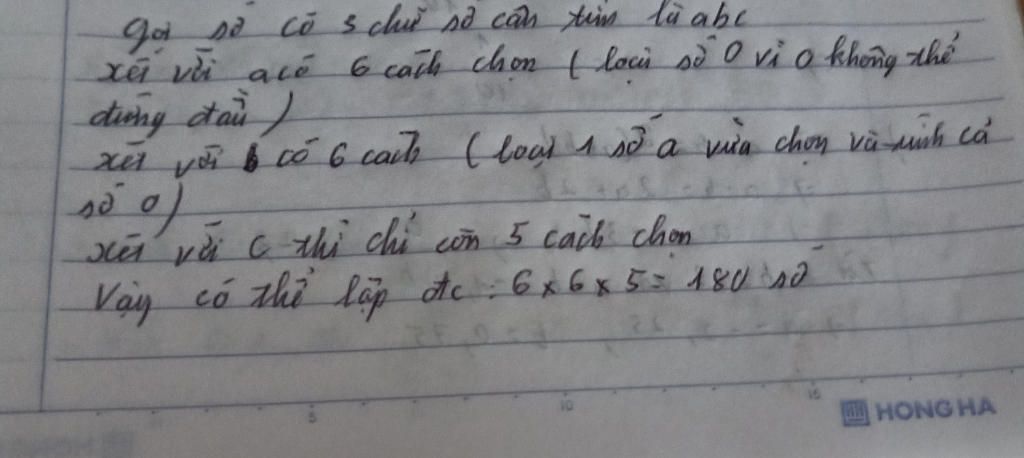 gọi số có 3 chữ số cần tìm là abc
xét với a có 6 cách chọn ( loại số 0 vì 0 không thể
đứng đầu )
xét với b có 6 cách ( loại 1 số a vừa chọn và tính cả
số 0 )
xét với c thì chỉ còn 5 cách chọn
Vậy có thể lập đc : 6 x 6 x 5 = 180 số
5 10 15
HONG HA